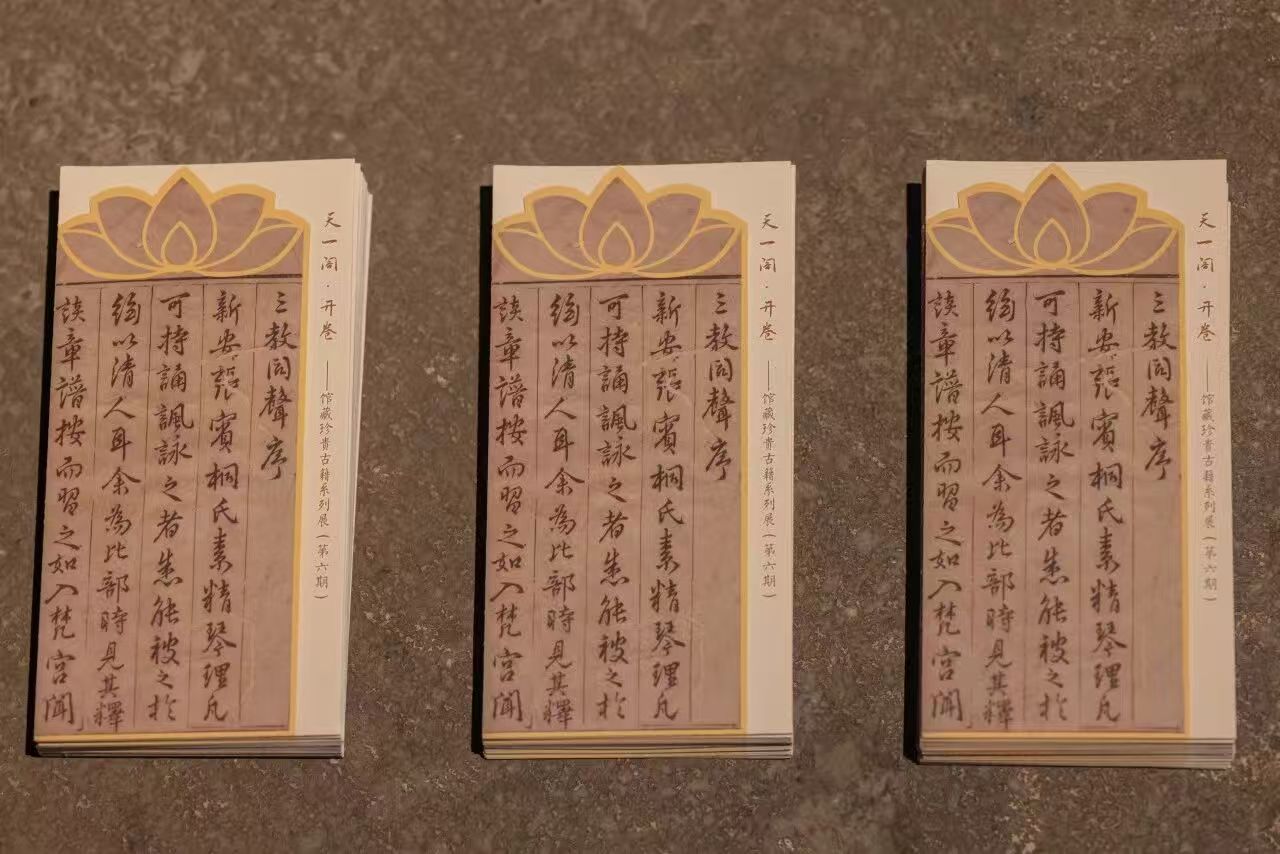 天一阁·开卷 ——馆藏珍贵古籍系列展（第六期）
三教同聲序
新安張賓桐氏素精琴理凡
可持誦諷詠之者悉能被之於
以清人耳余為比部時見其釋
談章譜按而習之如入梵宮聞
天一阁·开卷 ——馆藏珍贵古籍系列展（第六期）
三教同聲序
新安張賓桐氏素精琴理凡
可持誦諷詠之者悉能被之於
以清人耳余為比部時見其釋
談章譜按而習之如入梵宮聞
天一阁·开卷 ——馆藏珍贵古籍系列展（第六期）
三教同聲序
新安張賓桐氏素精琴理凡
可持誦諷詠之者悉能被之於
以清人耳余為比部時見其釋
談章譜按而習之如入梵宮聞